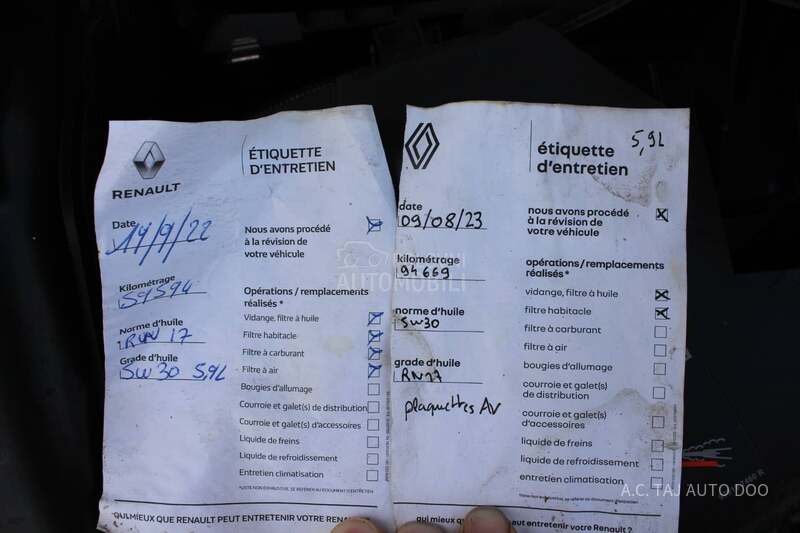 RENAULT
ÉTIQUETTE
D'ENTRETIEN
Date
14/9/22
Nous avons procédé
à la révision de
votre véhicule
Kilométrage
59594
Opérations / remplacements
réalisés *
Norme d'huile
RN 17
Vidange, filtre à huile
Filtre habitacle
Grade d'huile
5W30 5,9L
Filtre à carburant
Filtre à air
Bougies d'allumage
Courroie et galet(s) de distribution
Courroie et galet(s) d'accessoires
Liquide de freins
Liquide de refroidissement
Entretien climatisation
*LISTE NON EXHAUSTIVE, SE RÉFÉRER AU DOCUMENT D'ENTRETIEN
QUI MIEUX QUE RENAULT PEUT ENTRETENIR VOTRE RENA
5,9L
étiquette
d'entretien
date
09/08/23
nous avons procédé
à la révision de
votre véhicule
kilométrage
94669
opérations / remplacements
réalisés *
norme d'huile
5W30
vidange, filtre à huile
filtre habitacle
grade d'huile
RN17
filtre à carburant
filtre à air
bougies d'allumage
plaquettes AV
courroie et galet(s)
de distribution
courroie et galet(s)
d'accessoires
liquide de freins
liquide de refroidissement
entretien climatisation
qui mieux que peut entretenir votre Renault ?
AUTOMOBILI
A.C. TAJ AUTO DOO